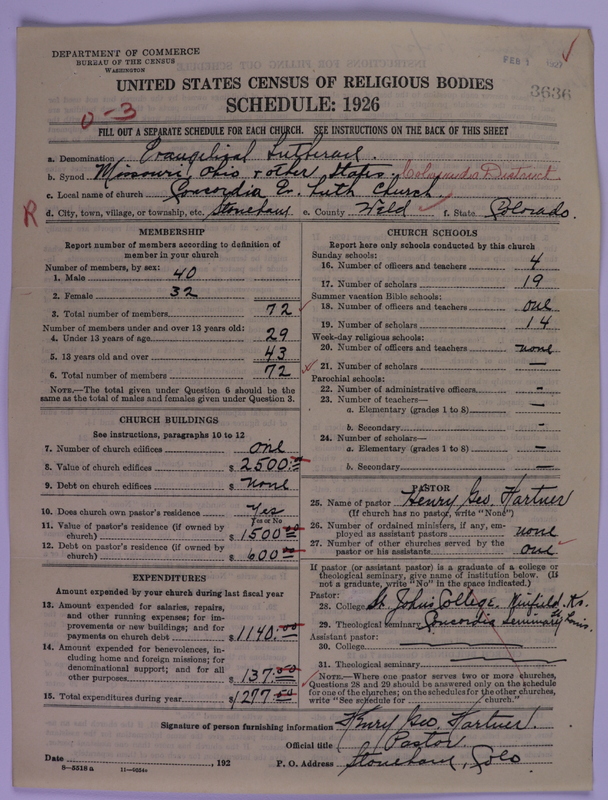 DEPARTMENT OF COMMERCE
BUREAU OF THE CENSUS
WASHINGTON
FEB 1 1927
3636
UNITED STATES CENSUS OF RELIGIOUS BODIES
SCHEDULE: 1926
0-3
FILL OUT A SEPARATE SCHEDULE FOR EACH CHURCH. SEE INSTRUCTIONS ON THE BACK OF THIS SHEET
a. Denomination Evangelical Lutheran.
b. Synod Missouri, Ohio & other States. Colorado District
c. Local name of church Concordia Ev. Luth Church
R d. City, town, village, or township, etc. Stoneham e. County Weld f. State Colorado.
MEMBERSHIP
Report number of members according to definition of
member in your church
Number of members, by sex:
1. Male 40
2. Female 32
3. Total number of members 72
Number of members under and over 13 years old:
4. Under 13 years of age 29
5. 13 years old and over 43
6. Total number of members 72
NOTE.—The total given under Question 6 should be
same as the total of males and females given under Question 3.
CHURCH BUILDINGS
See instructions, paragraphs 10 to 12
7. Number of church edifices one
8. Value of church edifices $ 2500.00
9. Debt on church edifices $ none
10. Does church own pastor's residence? Yes
Yes or No
11. Value of pastor's residence (if owned by
church) $ 1500.00
12. Debt on pastor's residence (if owned by
church) $ 600.00
EXPENDITURES
Amount expended by your church during last fiscal year
13. Amount expended for salaries, repairs,
and other running expenses; for im-
provements or new buildings; and for
payments on church debt $ 1140.00
14. Amount expended for benevolences, in-
cluding home and foreign missions; for
denominational support; and for all
other purposes $ 137.00
15. Total expenditures during year $ 1277.00
CHURCH SCHOOLS
Report here only schools conducted by this church
Sunday schools:
16. Number of officers and teachers 4
17. Number of scholars 19
Summer vacation Bible schools:
18. Number of officers and teachers one
19. Number of scholars 14
Week-day religious schools:
20. Number of officers and teachers none
21. Number of scholars —
Parochial schools:
22. Number of administrative officers -
23. Number of teachers—
a. Elementary (grades 1 to 8) —
b. Secondary -
24. Number of scholars—
a. Elementary (grades 1 to 8) —
b. Secondary —
PASTOR
25. Name of pastor Henry Geo. Hartner
(If church has no pastor, write "None")
26. Number of ordained ministers, if any, em-
ployed as assistant pastors none
27. Number of other churches served by the
pastor or his assistants one
If pastor (or assistant pastor) is a graduate of a college or
theological seminary, give name of institution below. (If
not a graduate, write "No" in the space indicated.)
Pastor:
28. College St. John's College. Winfield, Ks.
29. Theological seminary Concordia Seminary St. Louis.
Assistant pastor:
30. College
31. Theological seminary
NOTE.—Where one pastor serves two or more churches,
Questions 28 and 29 should be answered only on the schedule
for one of the churches; on the schedules for the other churches,
write "See schedule for church."
Signature of person furnishing information Henry Geo. Hartner.
Official title Pastor
Date , 192 P. O. Address Stoneham, Colo.
8—5516 a 11—9034